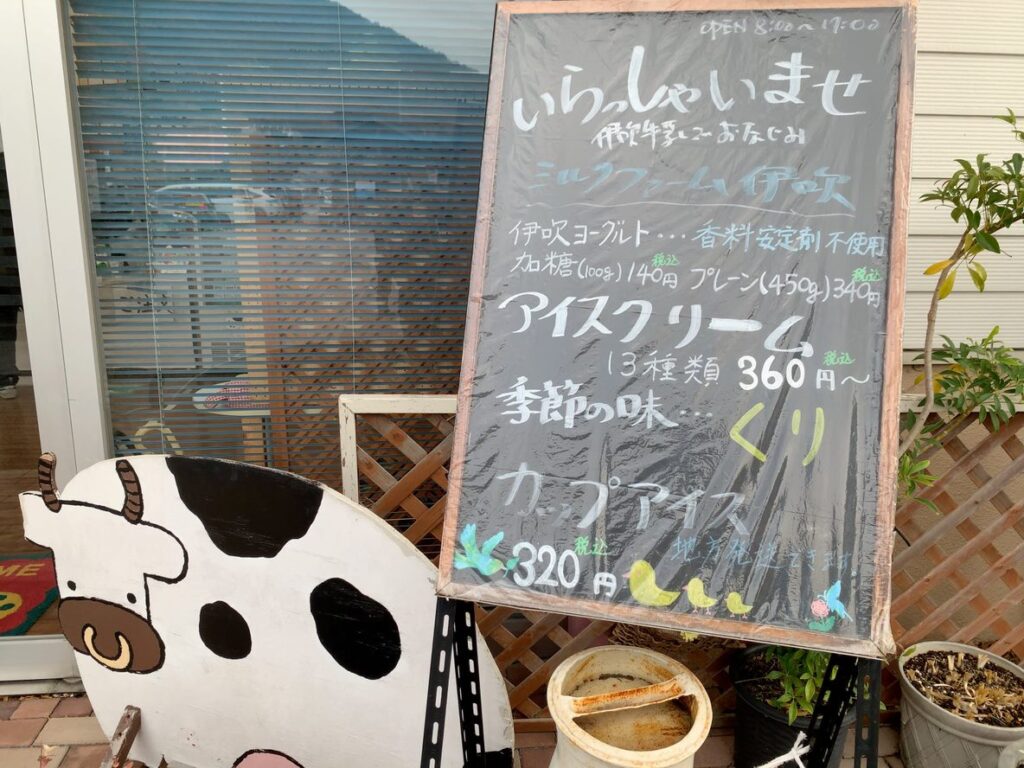 OPEN 8:00〜17:00
いらっしゃいませ
伊吹牛乳でおなじみ
ミルクファーム伊吹
伊吹ヨーグルト・・・香料安定剤不使用
加糖(100g)140円税込 プレーン(450g)340円税込
アイスクリーム
13種類 360円〜税込
季節の味・・・くり
カップアイス
320円税込
地方発送できます!
ME